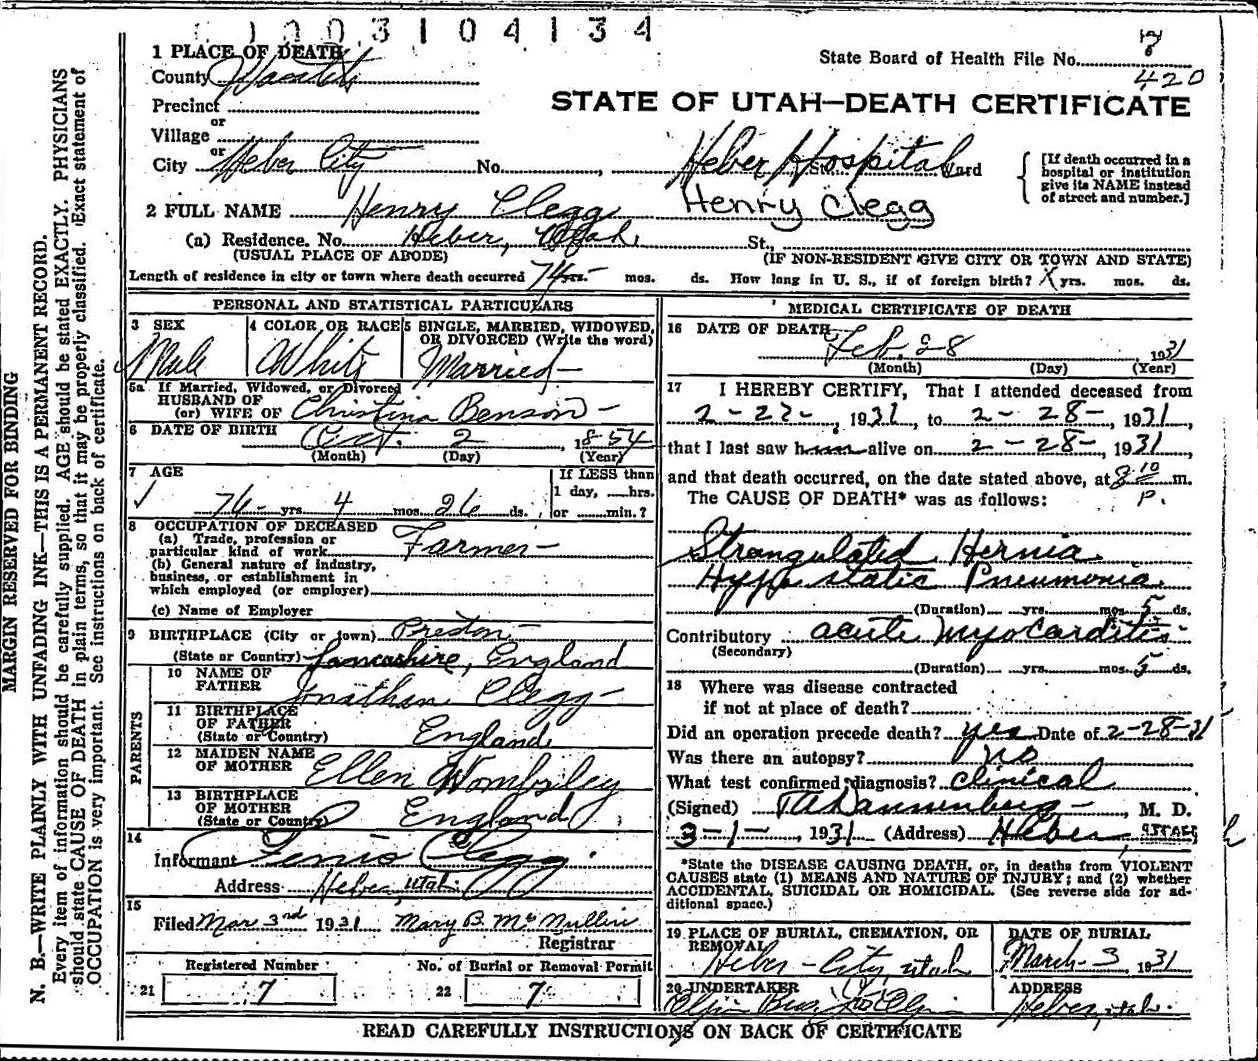 1003104134
1 PLACE OF DEATH
State Board of Health File No. 7
420
County
Precinct
or
Village
or
City Heber City No. Heber Hospital St. Ward
STATE OF UTAH—DEATH CERTIFICATE
[If death occurred in a
hospital or institution
give its NAME instead
of street and number.]
2 FULL NAME Henry Clegg Henry Clegg
(a) Residence. No. Heber, Utah St.,
(USUAL PLACE OF ABODE) (IF NON-RESIDENT GIVE CITY OR TOWN AND STATE)
Length of residence in city or town where death occurred 74 yrs. mos. ds. How long in U. S., if of foreign birth? X yrs. mos. ds.
PERSONAL AND STATISTICAL PARTICULARS
3 SEX
Male
4 COLOR OR RACE
White
5 SINGLE, MARRIED, WIDOWED,
OR DIVORCED (Write the word)
Married—
5a If Married, Widowed, or Divorced
HUSBAND OF
(or) WIFE OF Christina Benson—
6 DATE OF BIRTH Oct. 2 1854
(Month) (Day) (Year)
7 AGE
76 yrs. 4 mos. 26 ds.
If LESS than
1 day, ....hrs.
or ....min.?
8 OCCUPATION OF DECEASED
(a) Trade, profession or
particular kind of work Farmer—
(b) General nature of industry,
business, or establishment in
which employed (or employer)
(c) Name of Employer
9 BIRTHPLACE (City or town) Preston—
(State or Country) Lancashire, England
PARENTS
10 NAME OF
FATHER Jonathan Clegg—
11 BIRTHPLACE
OF FATHER
(State or Country) England
12 MAIDEN NAME
OF MOTHER Ellen Wombsley
13 BIRTHPLACE
OF MOTHER
(State or Country) England
14
Informant Clegg
Address Heber, Utah
15
Filed Mar 3rd 1931 Mary B. McMullin
Registrar
Registered Number
21 7
No. of Burial or Removal Permit
22 7
MEDICAL CERTIFICATE OF DEATH
16 DATE OF DEATH Feb. 28, 1931
(Month) (Day) (Year)
17 I HEREBY CERTIFY, That I attended deceased from
2-22-, 1931, to 2-28-, 1931,
that I last saw him alive on 2-28-, 1931
and that death occurred, on the date stated above, at 8 10 P. m.
The CAUSE OF DEATH* was as follows:
Strangulated Hernia
Hypostatic Pneumonia
(Duration) yrs. mos. 5 ds.
Contributory acute myocarditis
(Secondary)
(Duration) yrs. mos. 5 ds.
18 Where was disease contracted
if not at place of death?
Did an operation precede death? yes Date of 2-28-31
Was there an autopsy? no
What test confirmed diagnosis? clinical
(Signed) Dannenberg—, M. D.
3-1-, 1931 (Address) Heber
*State the DISEASE CAUSING DEATH, or, in deaths from VIOLENT
CAUSES state (1) MEANS AND NATURE OF INJURY; and (2) whether
ACCIDENTAL, SUICIDAL OR HOMICIDAL. (See reverse side for ad-
ditional space.)
19 PLACE OF BURIAL, CREMATION, OR
REMOVAL
Heber-City, Utah
DATE OF BURIAL
March-3, 1931
20 UNDERTAKER
ADDRESS
Heber, Utah.
READ CAREFULLY INSTRUCTIONS ON BACK OF CERTIFICATE
MARGIN RESERVED FOR BINDING
N. B.—WRITE PLAINLY WITH UNFADING INK—THIS IS A PERMANENT RECORD.
Every item of information should be carefully supplied. AGE should be stated EXACTLY. PHYSICIANS
should state CAUSE OF DEATH in plain terms, so that it may be properly classified. Exact statement of
OCCUPATION is very important. See instructions on back of certificate.